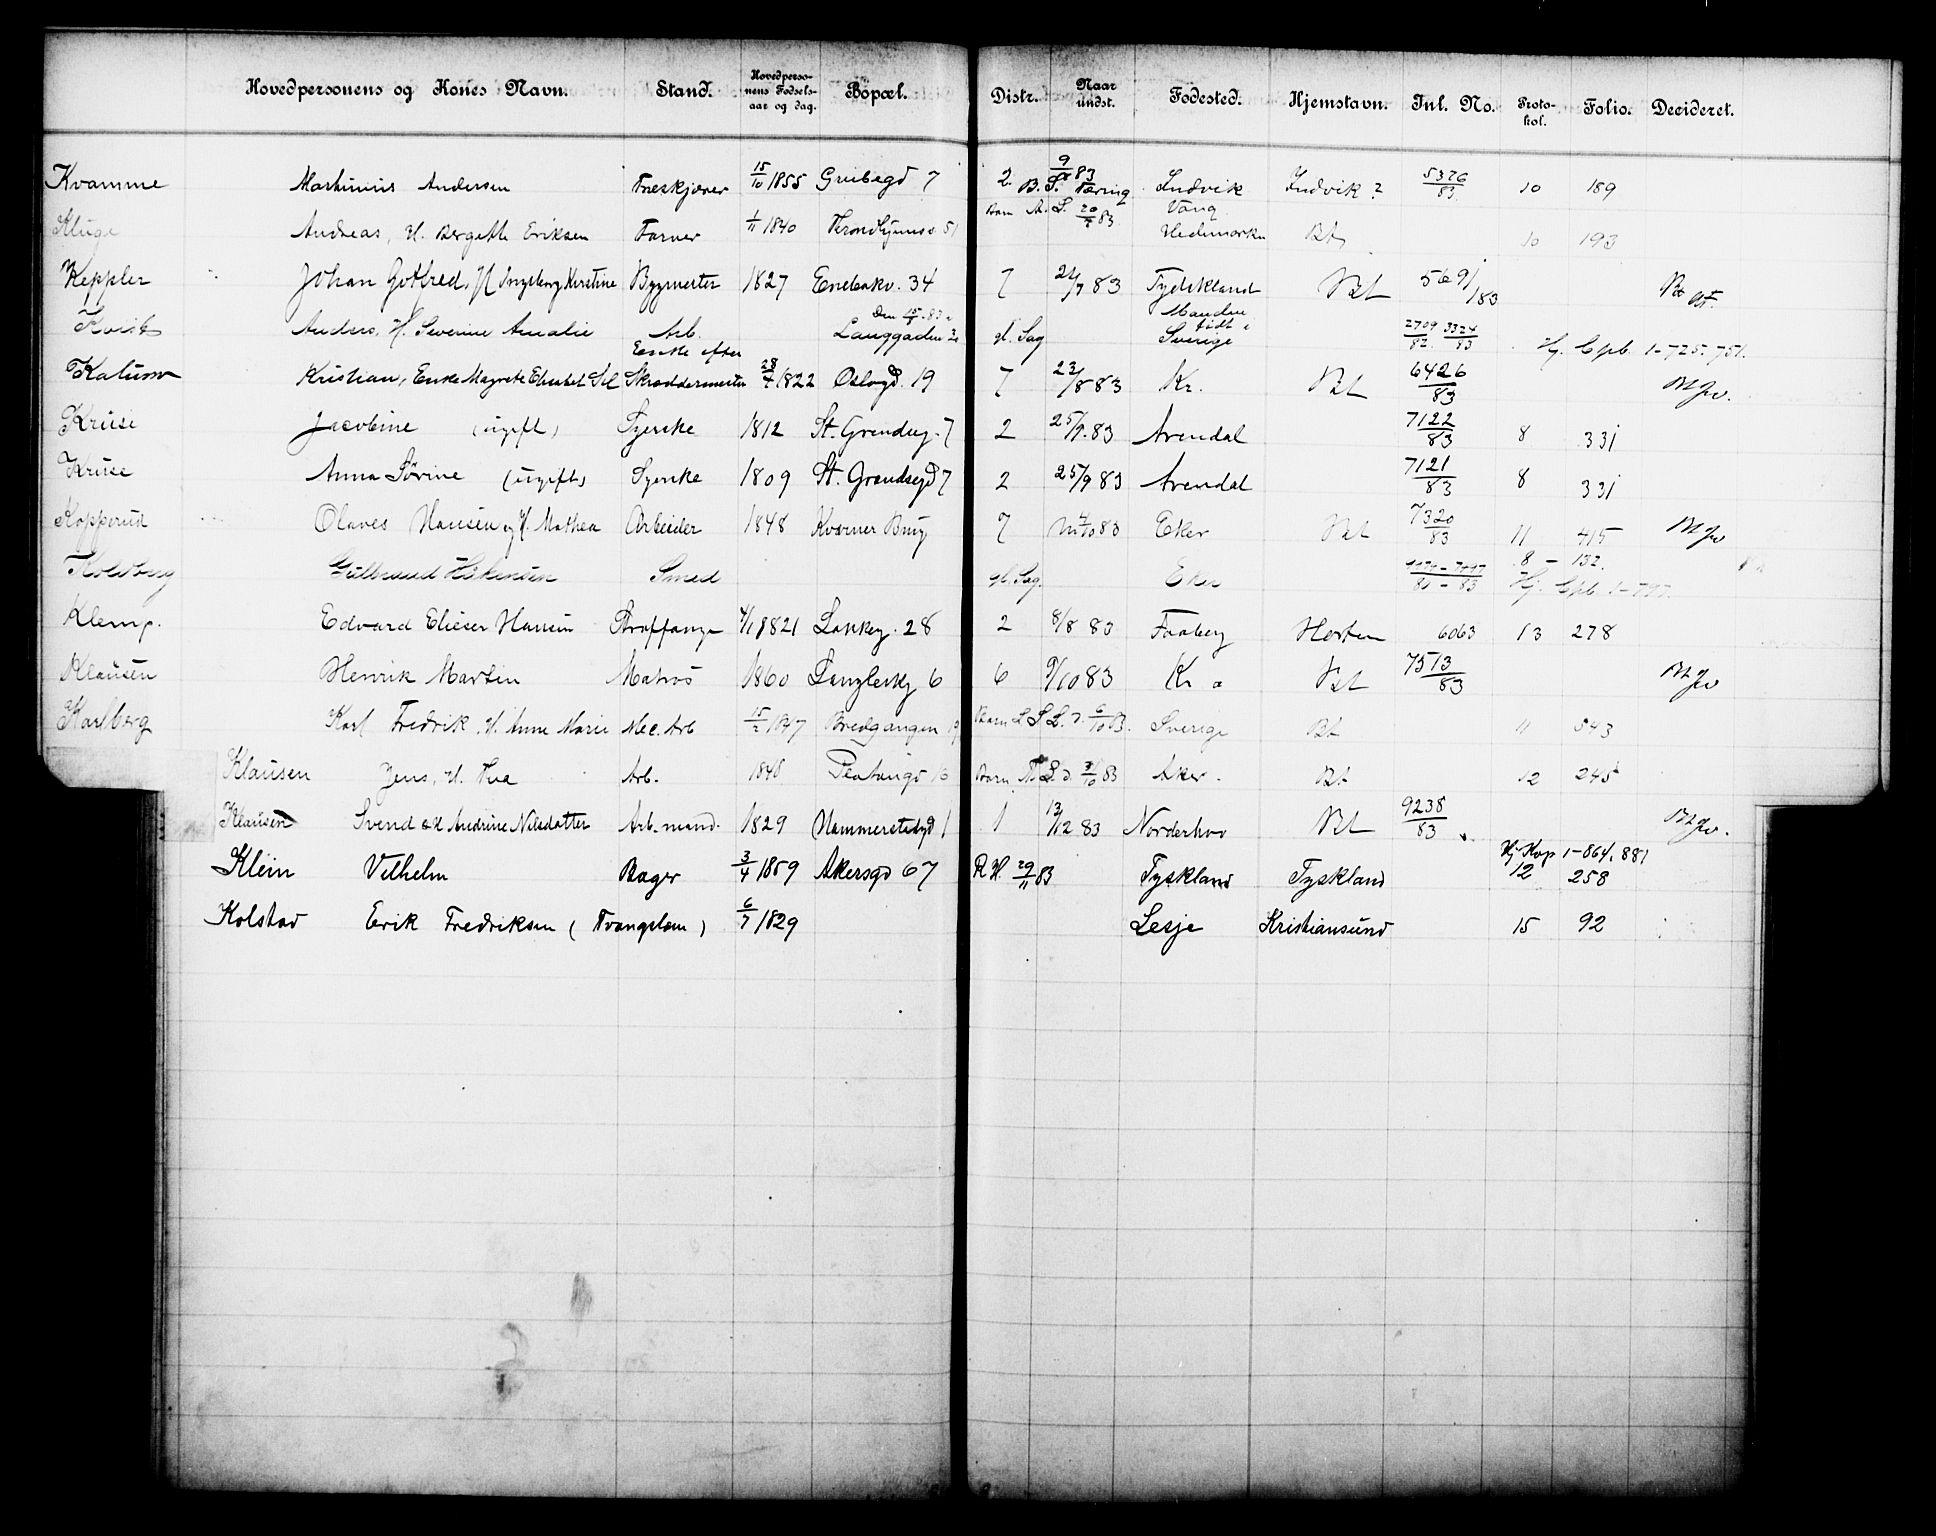 Hovedpersonens og Kones Navn. Stand. Hovedpersonens Fødselsaar og dag. Bopæl. Distr. Naar undst. Fødested. Hjemstavn. Inl. No. Protokol. Folio. Decideret.
Kvamme Martinius Andersen 15/10 1855 Grubegd 7 2 9/8 83 Indvik Indvik? 5376/83 10 189
Kluge Andreas, H. Bergethe Eriksen Farver 1/11 1840 Trondhjemsv. 51 Barn A. S. 20/7 83 Vang Hedemarken Bt 10 193
Keppler Johan Gotfred, H Ingeborg Kirstine Bygmester 1827 Enebakv. 34 7 21/7 83 Tydskland Bt 5691/83
Kvist Anders, H. Severine Amalie Arb. Langgaden gl. Sag Manden født i Sverige 2709/82 3324/83 Hj. Cpb. 1-725. 751.
Kristian, Enke Magrete Elisabet Enke efter Skræddermester 28/4 1822 Oslogd. 19 7 23/8 83 Kr. Bt 6426/83
Kruse Jacobine (ugift) Syerske 1812 St. Grændseg. 7 2 25/9. 83 Arendal 7122/83 8 331
Kruse Anna Sørine (ugift) Syerske 1809 St. Grændsegd 7 2 25/9 83 Arendal 7121/83 8 331
Kopperud Olaves Hansen og H. Mathea Arbeider 1848 Kværner Brug 7 4/10 83 Eker Bt 7320/83 11 415
Gulbrand Smed gl. Sag. Eker 8 - 132.
Klemp. Edvard Elieser Hansen Straffange 4/1 1821 Lakkeg. 28 2 8/8 83 Faaberg Horten 6063 13 278
Klausen Henrik Martin Matros 1860 6 6 9/10 83 Kr a Bt 7513/83
Karlberg Karl Fredrik, H. Anne Marie Mec. Arb 15/2 1847 Bredgangen Barn 6/10 83. Sverige Bt 11 543
Klausen Jens, H. Arb. Platousgd 16 Barn 83 Aker. Bt 12 245
Klausen Svend & H Andrine Nilsdatter Arb.mand. 1829 Hammerstadgd 1 1 13/12 83 Norderhov Bt 9238/83
Klein Vilhelm Bager 3/4 1859 Akersgd 67 R.H. 29/11 83 Tyskland Tyskland Hj Kop 1-864, 881 12 258
Kolstad Erik Fredriksen (Tvangslem) 6/7 1829 Lesje Kristiansund 15 92